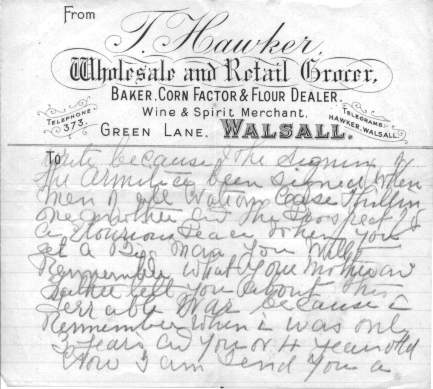 From
T. Hawker,
Wholesale and Retail Grocer,
BAKER, CORN FACTOR & FLOUR DEALER.
Wine & Spirit Merchant.
TELEPHONE 373.
TELEGRAMS: HAWKER, WALSALL.
GREEN LANE, WALSALL.
To
because the signin of
the armitice been signed when
men of all Nation
one nother an the Prospect of
a Glourious Peace when you
get a Big Man you will
Remember what your Mother an
Father tell you about this
Terrable War because i
Remember when i was only
3 years an you or 4 year old
Now I am send you a